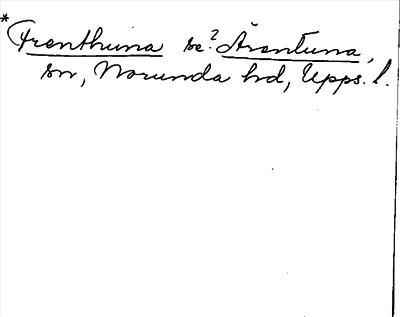 *Frenthuna se? Ärentuna,
sn, Norunda hd, Upps. l.